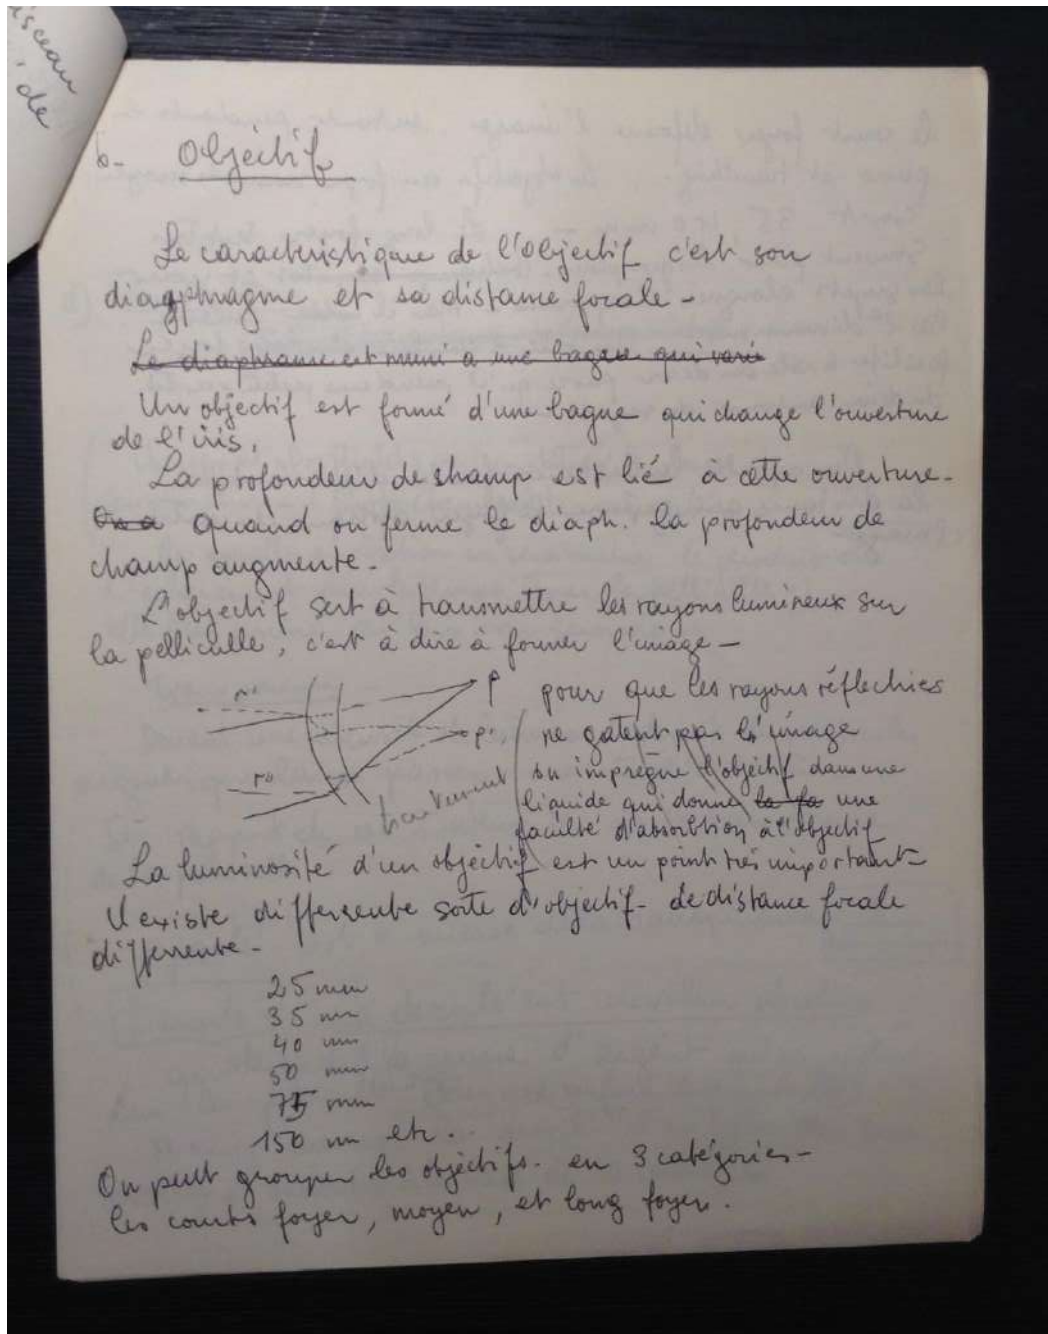 isceau
, de
b- Objéctif
Le caracteristique de l'objectif c'est son
diagphragme et sa distance focale -
Le diaphrame est muni a une bague qui varie
Un objectif est formé d'une bague qui change l'ouverture
de l'iris.
La profondeur de champ est lié à cette ouverture -
On a quand on ferme le diaph. la profondeur de
champ augmente -
L'objectif sert à transmettre les rayons lumineux sur
la pelliculle, c'est à dire à former l'image -
P pour que les rayons réflechies
P' ne gatent pas l'image
on imprègne l'objéctif dans une
traitement
liquide qui donne la fa une
faculté d'absorbtion à l'objectif
La luminosité d'un objéctif est un point très important -
Il existe differrente sorte d'objectif - de distance focale
differrente -
25 mm
35 mm
40 mm
50 mm
75 mm
150 mm etc.
On peut grouper les objéctifs - en 3 catégories -
les courts foyer, moyen, et long foyer.